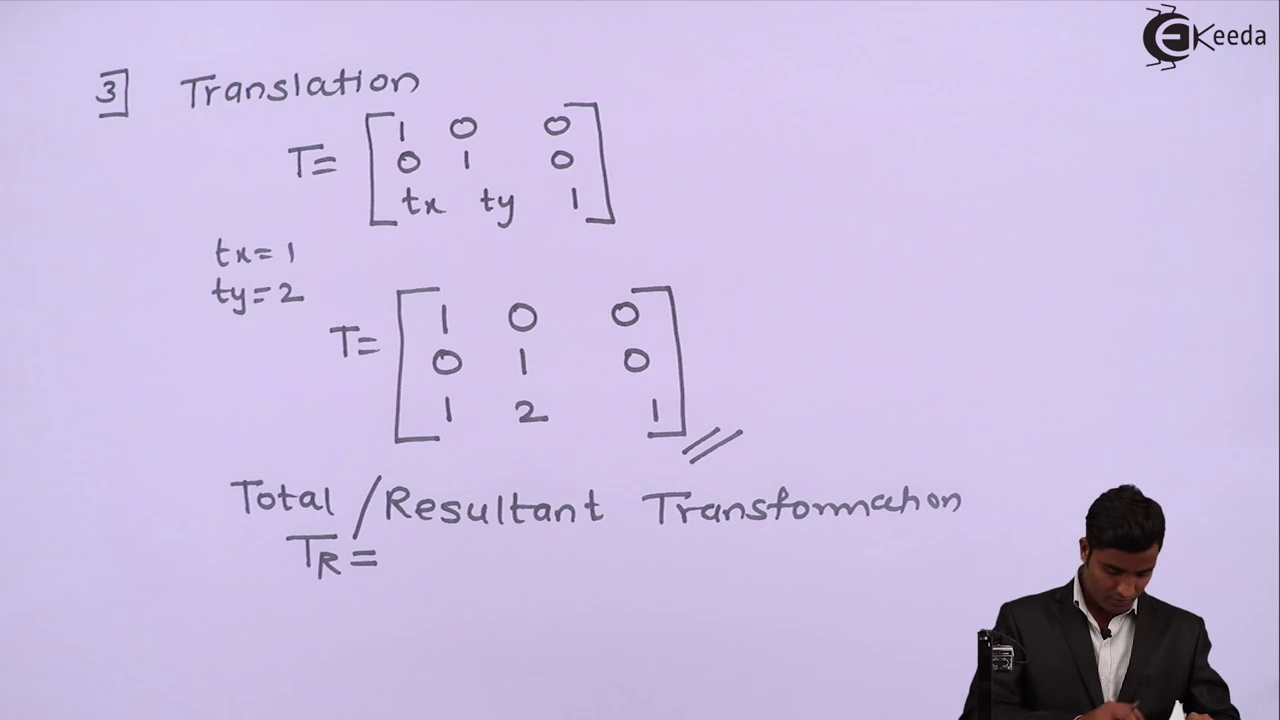 Ekeeda
3] Translation
T= [ 1 0 0
0 1 0
tx ty 1 ]
tx = 1
ty = 2
T= [ 1 0 0
0 1 0
1 2 1 ] //
Total / Resultant Transformation
TR =